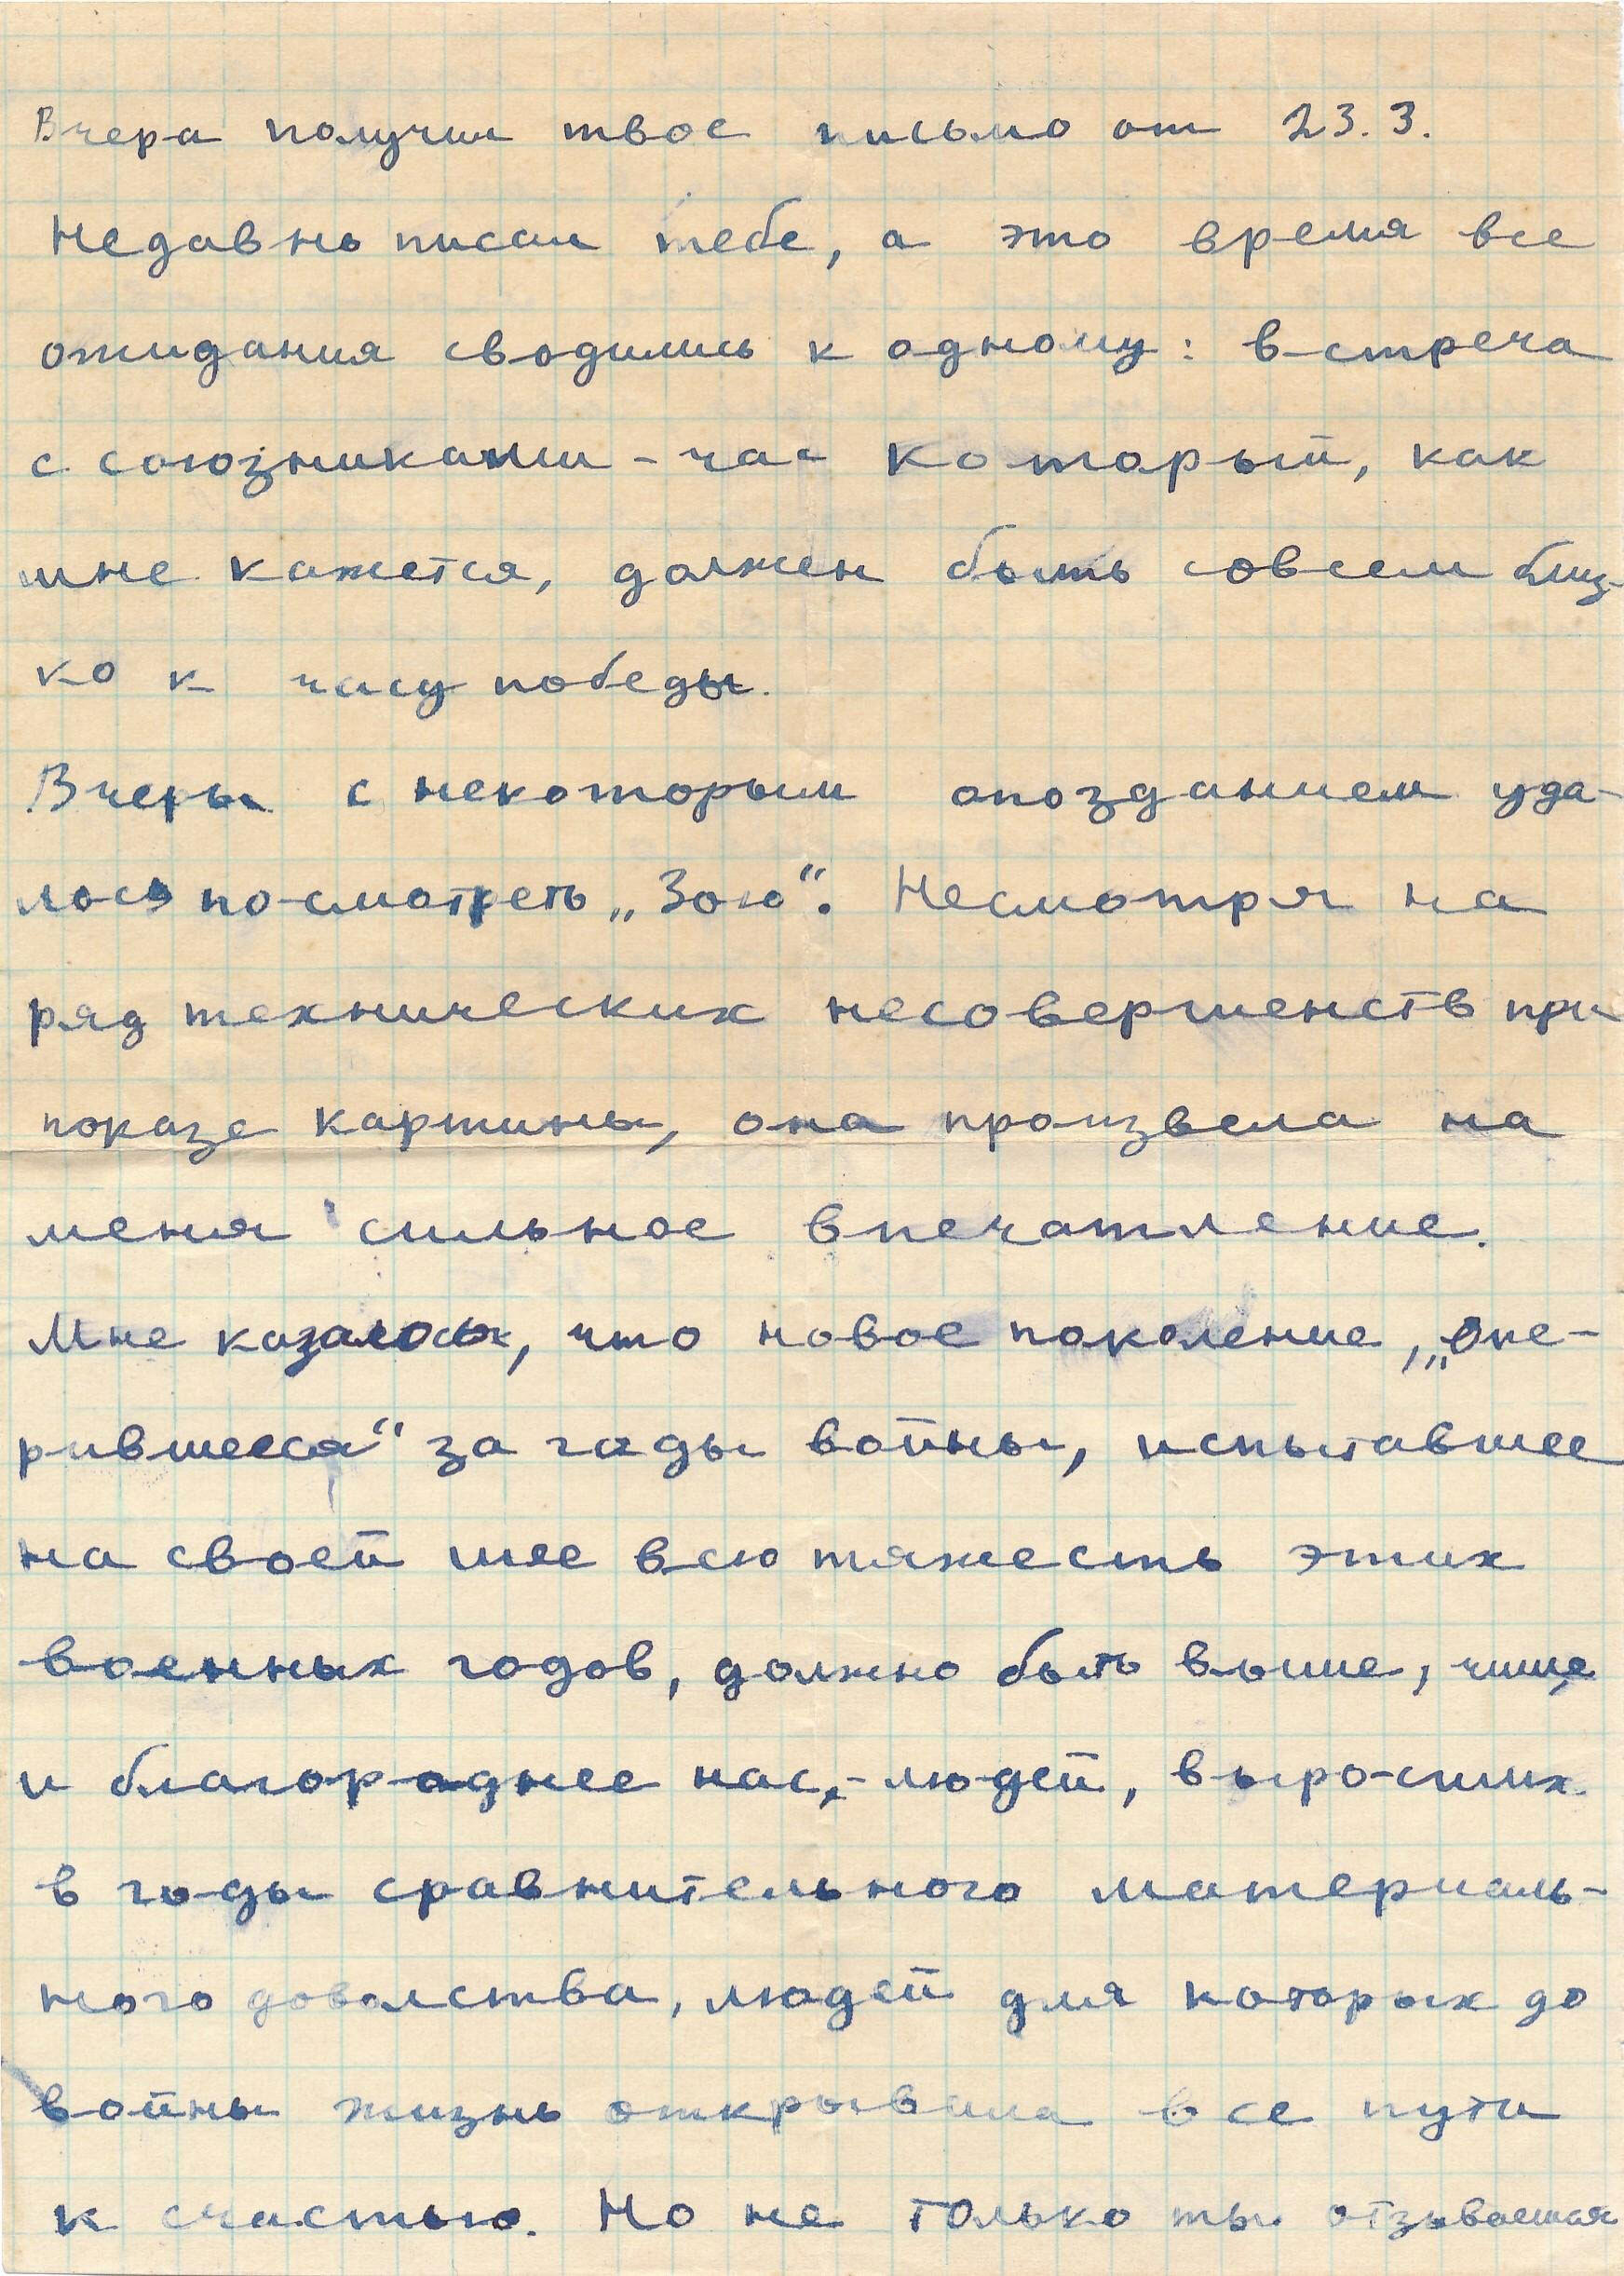 Вчера получил твое письмо от 23.3.
Недавно писал тебе, а это время все
ожидания сводились к одному: встреча
с союзниками - час который, как
мне кажется, должен быть совсем близ-
ко к часу победы.
Вчера с некоторым опозданием уда-
лось посмотреть „Зою“. Несмотря на
ряд технических несовершенств при
показе картины, она произвела на
меня сильное впечатление.
Мне казалось, что новое поколение, „опе-
рившееся“ за годы войны, испытавшее
на своей шее всю тяжесть этих
военных годов, должно быть выше, чище
и благороднее нас, - людей, выросших
в годы сравнительного материаль-
ного довольства, людей для которых до
войны жизнь открывала все пути
к счастью. Но не только ты отзываешься